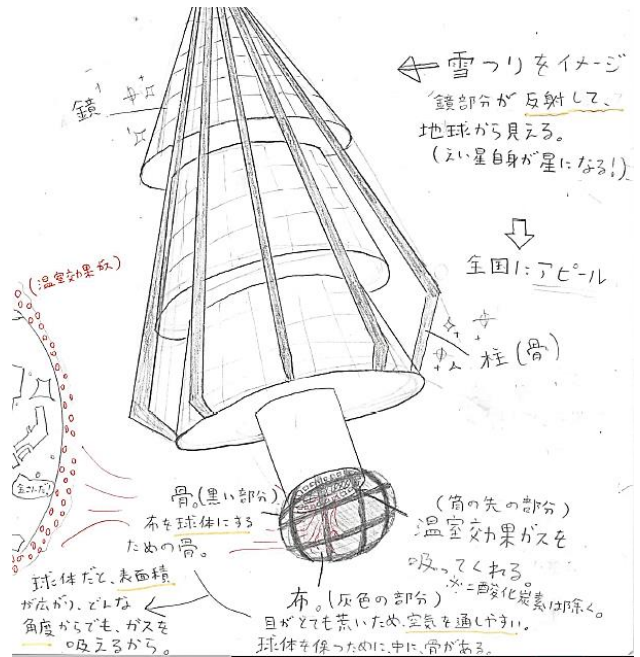 鏡
← 雪つりをイメージ
鏡部分が反射して、
地球から見える。
(えい星自身が星になる!)
全国にアピール
(温室効果ガス)
柱(骨)
骨。(黒い部分)
布を球体にする
ための骨。
(筒の先の部分)
温室効果ガスを
吸ってくれる。
※二酸化炭素は除く。
球体だと、表面積
が広がり、どんな
角度からでも、ガスを
吸えるから。
布。(灰色の部分)
目がとても荒いため、空気を通しやすい。
球体を保つために、中に、骨がある。